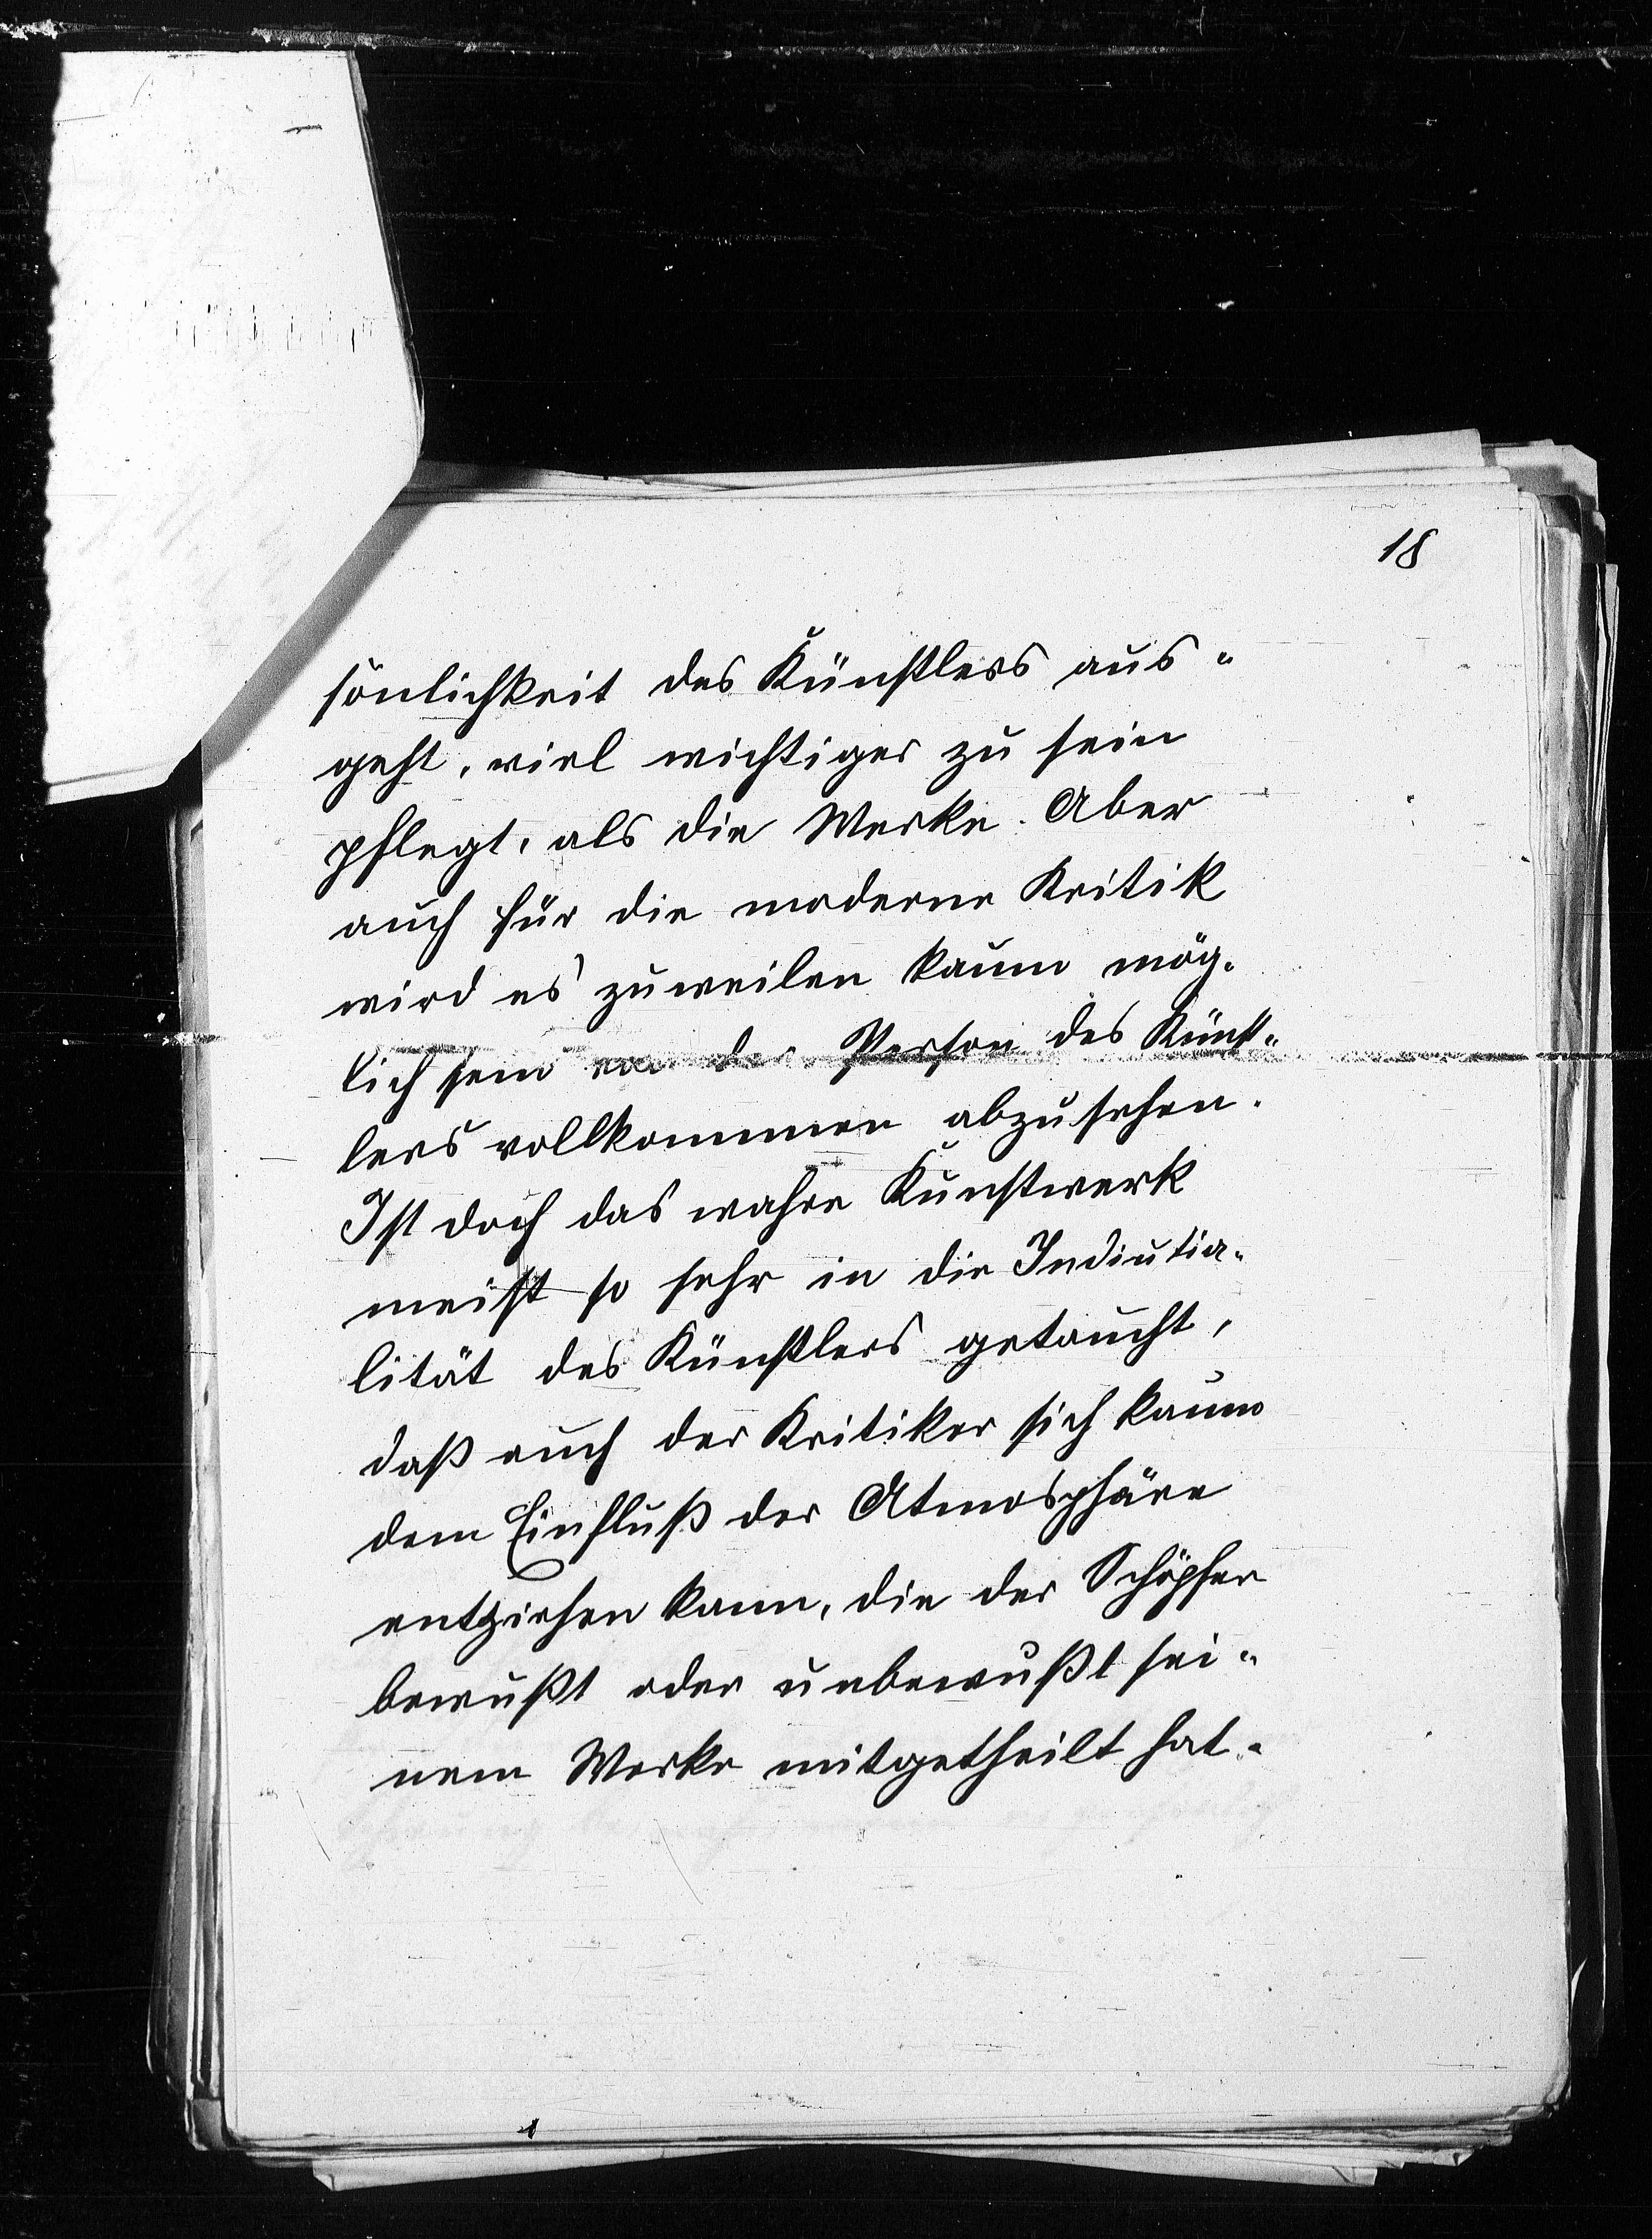 18
sönlichkeit des Künstlers aus-
geht, viel wichtiger zu sein
pflegt, als die Werke. Aber
auch für die moderne Kritik
wird es zuweilen kaum mög-
lich sein von der Person des Künst-
lers vollkommen abzusehen.
Ist doch das wahre Kunstwerk
meist so sehr in die Indivia-
lität des Künstlers getaucht,
daß auch der Kritiker sich kaum
dem Einfluß der Atmosphäre
entziehen kann, die der Schöpfer
bewußt oder unbewußt sei-
nem Werke mitgetheilt hat.